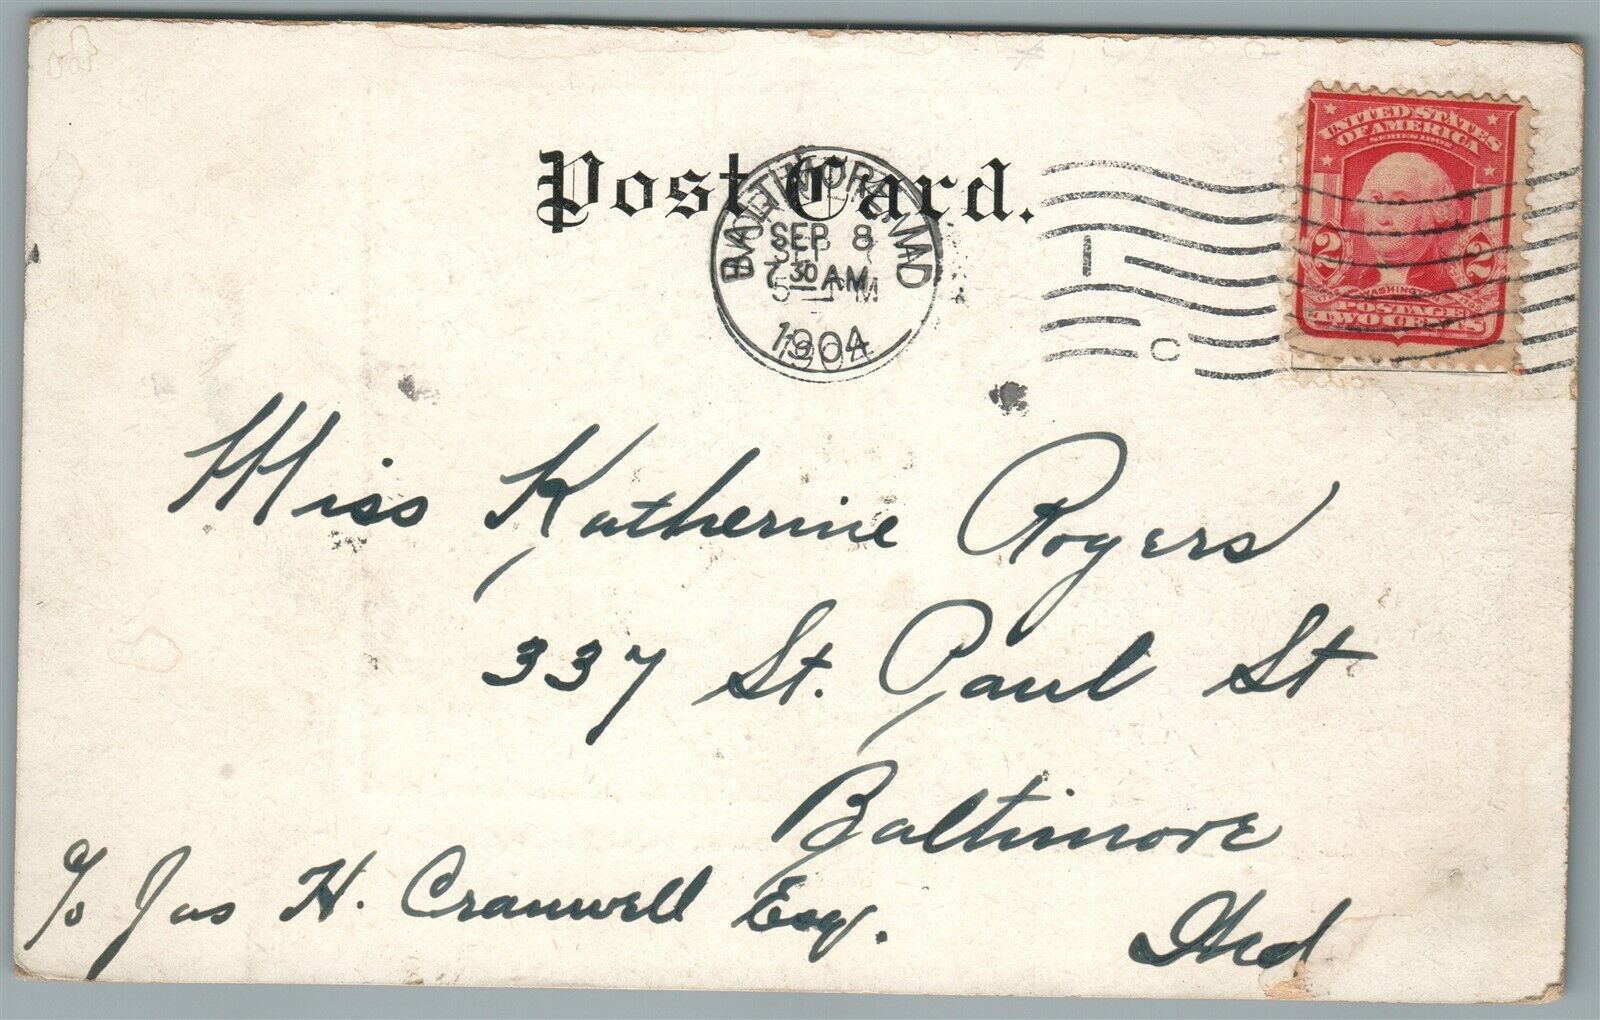 Post Card.
BALTIMORE, MD
SEP 8
7 30 AM
1904
1
C
UNITED STATES
OF AMERICA
SERIES 1902
2 2
WASHINGTON
POSTAGE
TWO CENTS
Miss Katherine Rogers
337 St. Paul St
Baltimore
Md
c/o Jas H. Cranwell Esq.